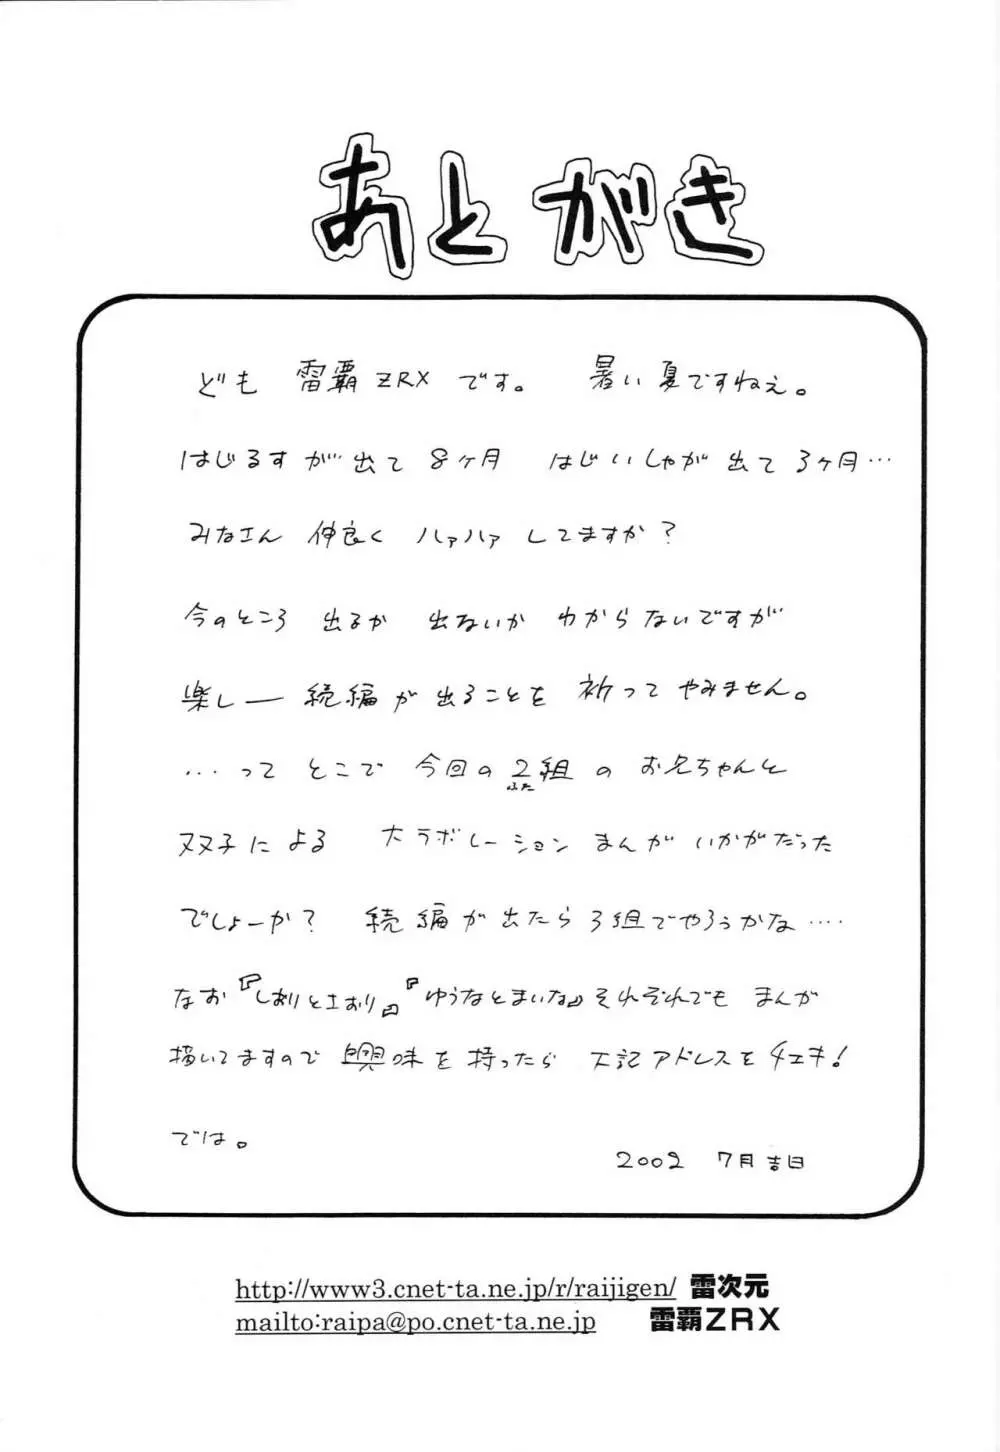 あとがき
ども 雷覇ZRX です。 暑い夏ですねぇ。
はじるすが出て 8ヶ月 はじいしゃが出て 3ヶ月…
みなさん 仲良く ハァハァ してますか?
今のところ 出るか 出ないか わからないですが
楽しー 続編が出ることを 祈って やみません。
…って とこで 今回の 2組 の お兄ちゃんと
ふた
双子による 大ラボレーション まんが いかがだった
でしょーか? 続編が出たら 3組でやろうかな‥‥
なお『しおりとエおり』『ゆうなとまいな』それぞれでも まんが
描いてますので 興味を 持ったら 下記アドレスを チェキ!
では。
2002 7月吉日
http://www3.cnet-ta.ne.jp/r/raijigen/ 雷次元
mailto:raipa@po.cnet-ta.ne.jp 雷覇ZRX